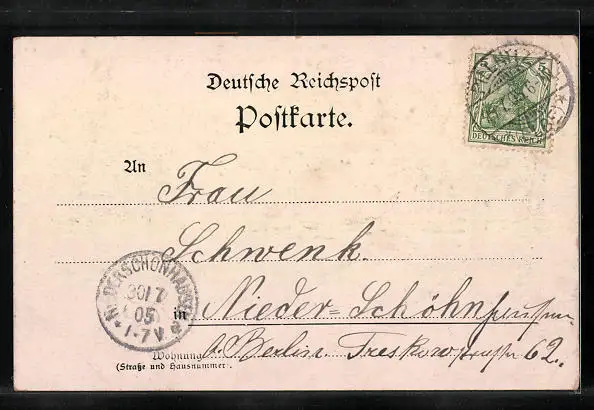 Deutsche Reichspost
Postkarte.
DEUTSCHES REICH
An
Frau
Schwenk.
in Nieder-Schönhausen
b. Berlin Treskowstrasse 62.
Wohnung
(Straße und Hausnummer)
NIEDERSCHÖNHAUSEN
30/7
05
* 1-7V *